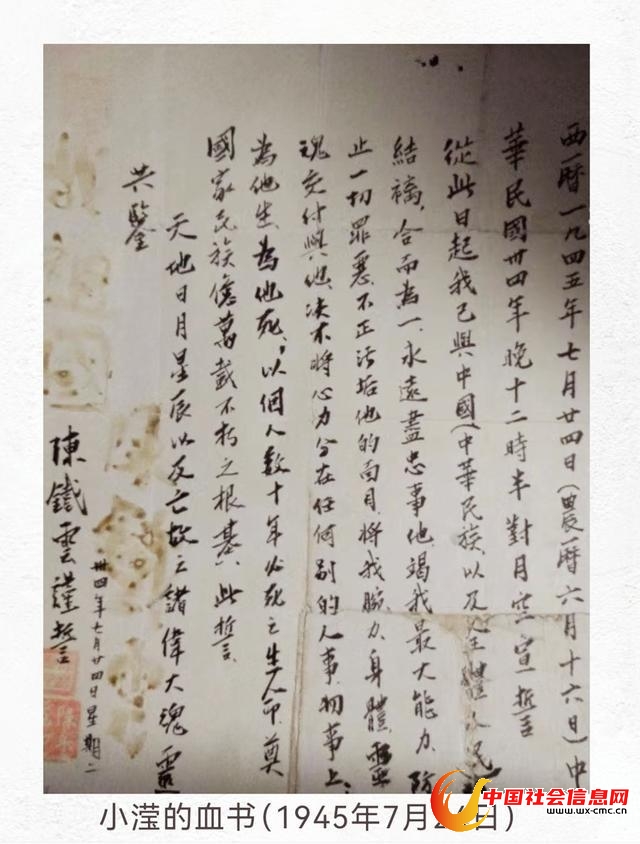 西曆一九四五年七月廿四日(農曆六月十六日)中
華民國卅四年晚十二時半對月空宣誓言
從此日起我已與中國(中華民族以及全體人民
結褵,合而為一,永遠盡忠事他,竭我最大能力,防
止一切罪惡、不正沾垢他的面目,將我腦力、身體、靈
魂交付與他,决不將心力分在任何別的人事、物事上、
為他生、為他死,以個人數十年必死之生命,奠
國家民族億萬載不朽之根基,此誓言、
天地日月星辰以及亡故之諸偉大魂靈
共鑒
卅四年七月廿四日星期二
陳鐵雲謹誓言
小滢的血书(1945年7月2 日)
中国社会信息网
www.wx-cmc.cn